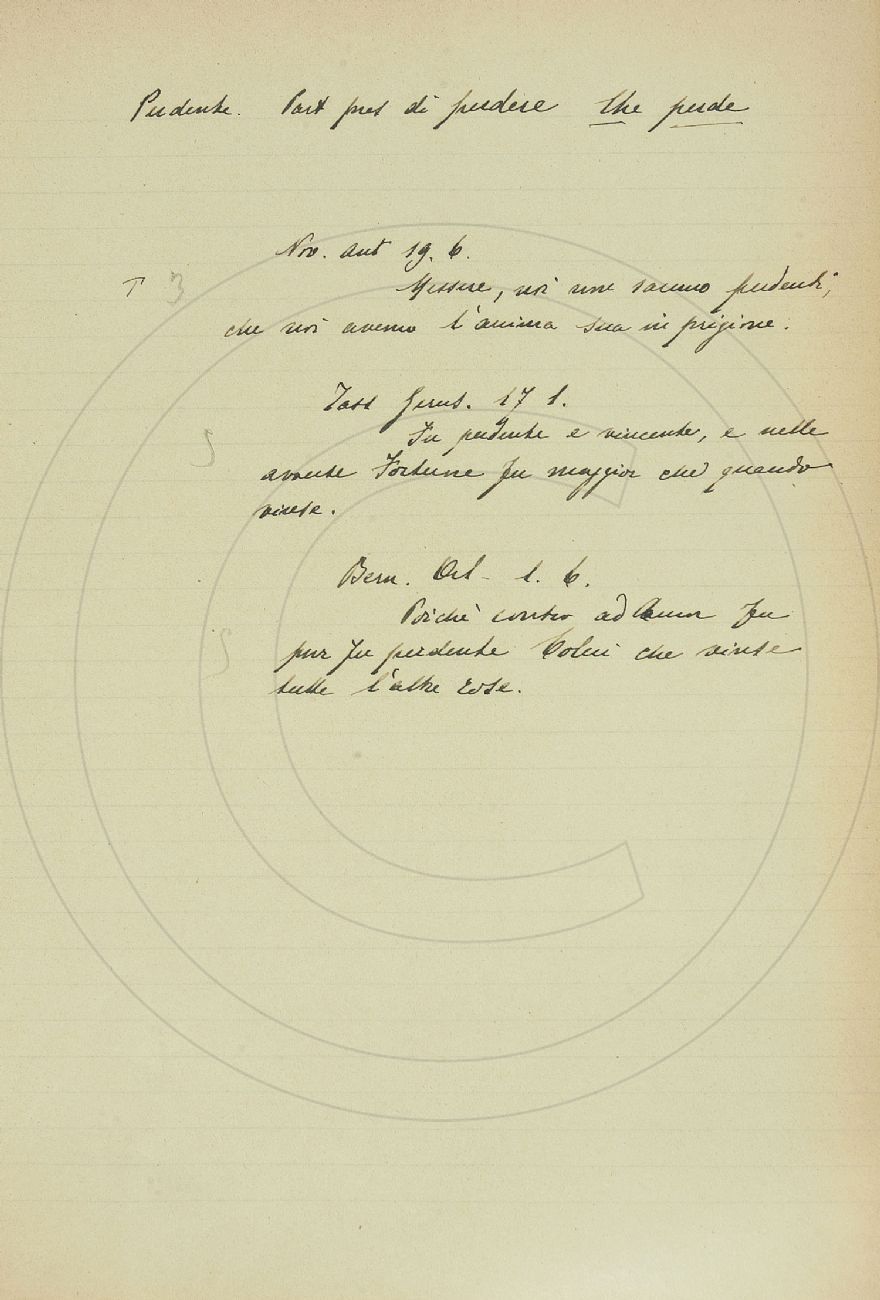 Perdente. Part pres di perdere Che perde
Nov. ant 19. 6.
T 3 Messere, noi non saremo perdenti,
che noi avemo l'anima sua in prigione.
Tass Gerus. 17 1.
Fu perdente e vincente, e nelle
avverse Fortune fu maggior che quando
vinse.
Bern. Orl. 1. 6.
Poichè contro ad Amor fu
pur fu perdente Colui che vinse
tutte l'altre cose.